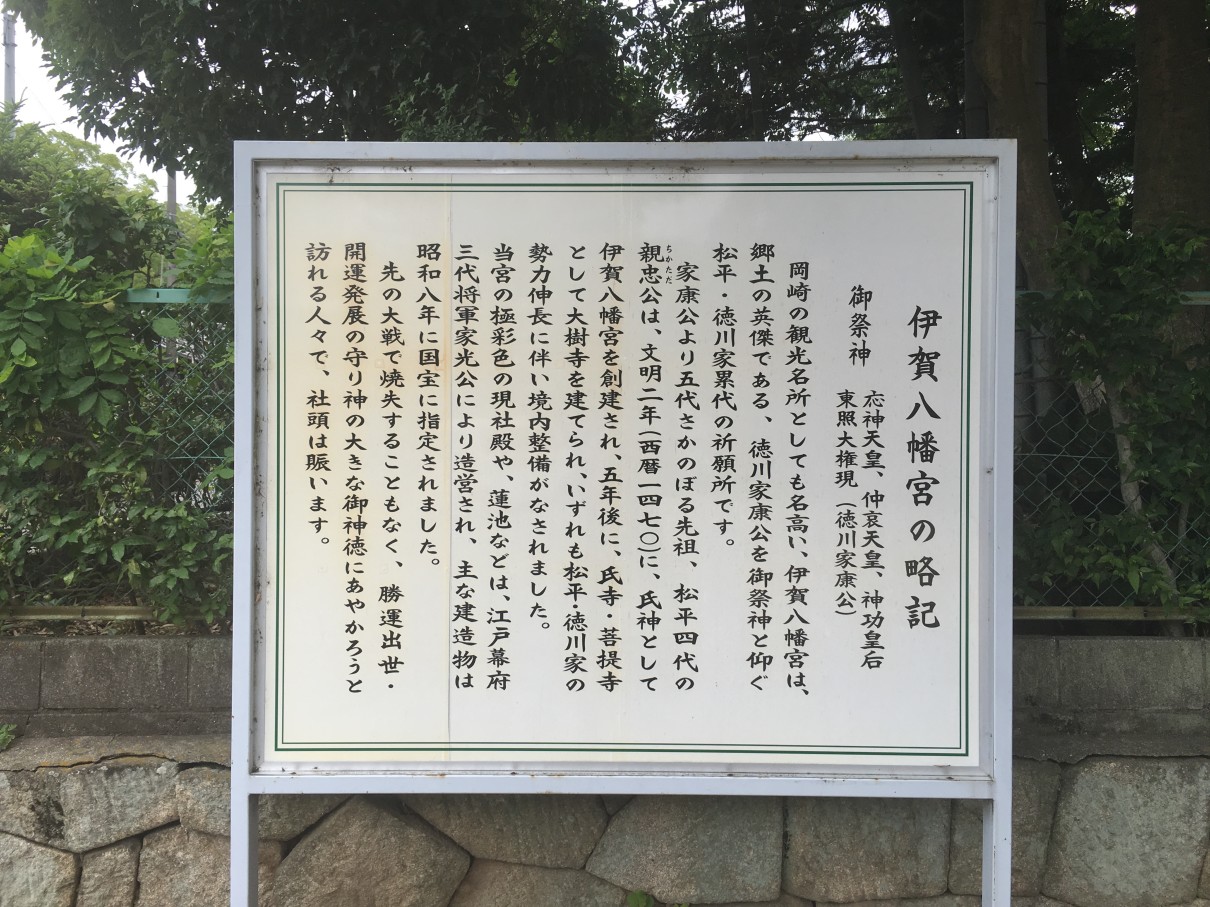 伊賀八幡宮の略記
御祭神
応神天皇、仲哀天皇、神功皇后
東照大権現（徳川家康公）
岡崎の観光名所としても名高い、伊賀八幡宮は、
郷土の英傑である、徳川家康公を御祭神と仰ぐ
松平・徳川家累代の祈願所です。
家康公より五代さかのぼる先祖、松平四代の
親忠公は、文明二年(西暦一四七〇)に、氏神として
ちかただ
伊賀八幡宮を創建され、五年後に、氏寺・菩提寺
として大樹寺を建てられ、いずれも松平・徳川家の
勢力伸長に伴い境内整備がなされました。
当宮の極彩色の現社殿や、蓮池などは、江戸幕府
三代将軍家光公により造営され、主な建造物は
昭和八年に国宝に指定されました。
先の大戦で焼失することもなく、勝運出世・
開運発展の守り神の大きな御神徳にあやかろうと
訪れる人々で、社頭は賑います。